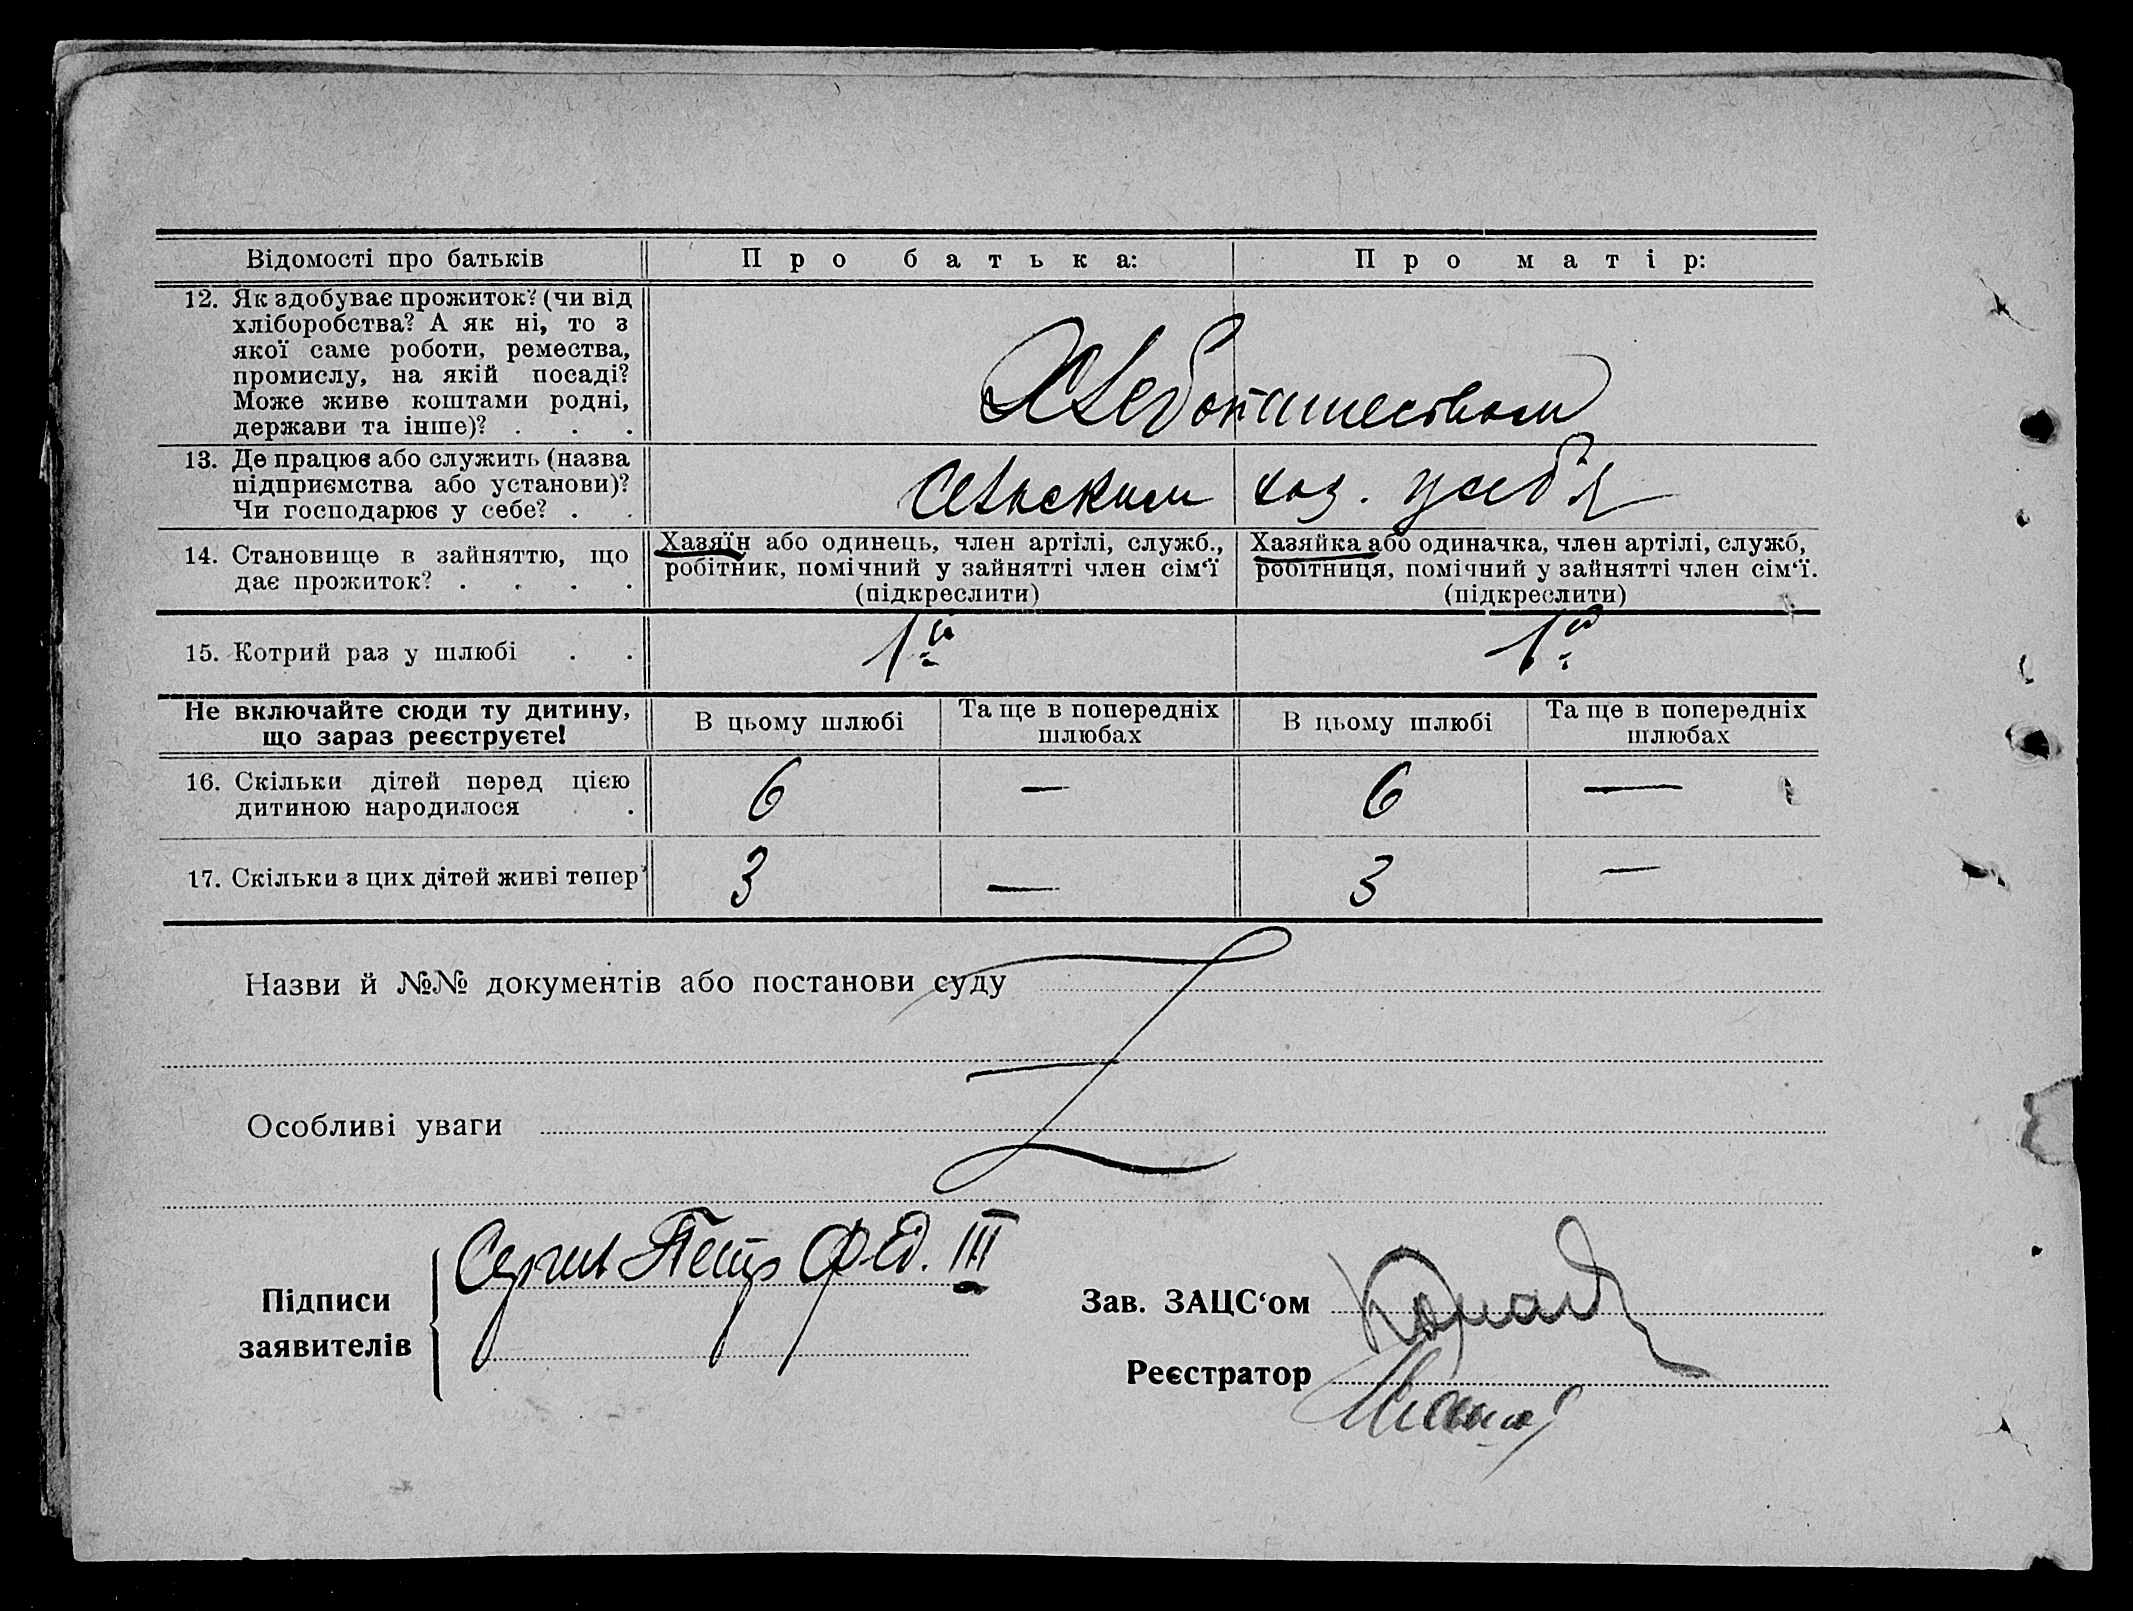 Відомості про батьків
Про батька:
Про матір:
12. Як здобуває прожиток? (чи від
хліборобства? А як ні, то з
якої саме роботи, ремества,
промислу, на якій посаді?
Може живе коштами родні,
держави та інше)? . . .
Хлебопашеством
13. Де працює або служить (назва
підприємства або установи)?
Чи господарює у себе? . .
Сельским хоз. у себя
14. Становище в зайняттю, що
дає прожиток? . . . .
Хазяїн або одинець, член артілі, служб.,
робітник, помічний у зайнятті член сім‘ї
(підкреслити)
Хазяйка або одиначка, член артілі, служб,
робітниця, помічний у зайнятті член сім‘ї.
(підкреслити)
15. Котрий раз у шлюбі . .
1й
1й
Не включайте сюди ту дитину,
що зараз реєструєте!
В цьому шлюбі
Та ще в попередніх
шлюбах
В цьому шлюбі
Та ще в попередніх
шлюбах
16. Скільки дітей перед цією
дитиною народилося . .
6 — 6 —
17. Скільки з цих дітей живі тепер
3 — 3 —
Назви й №№ документів або постанови суду
Особливі уваги
Підписи
заявителів
Петр Фед. III
Зав. ЗАЦС‘ом
Реєстратор